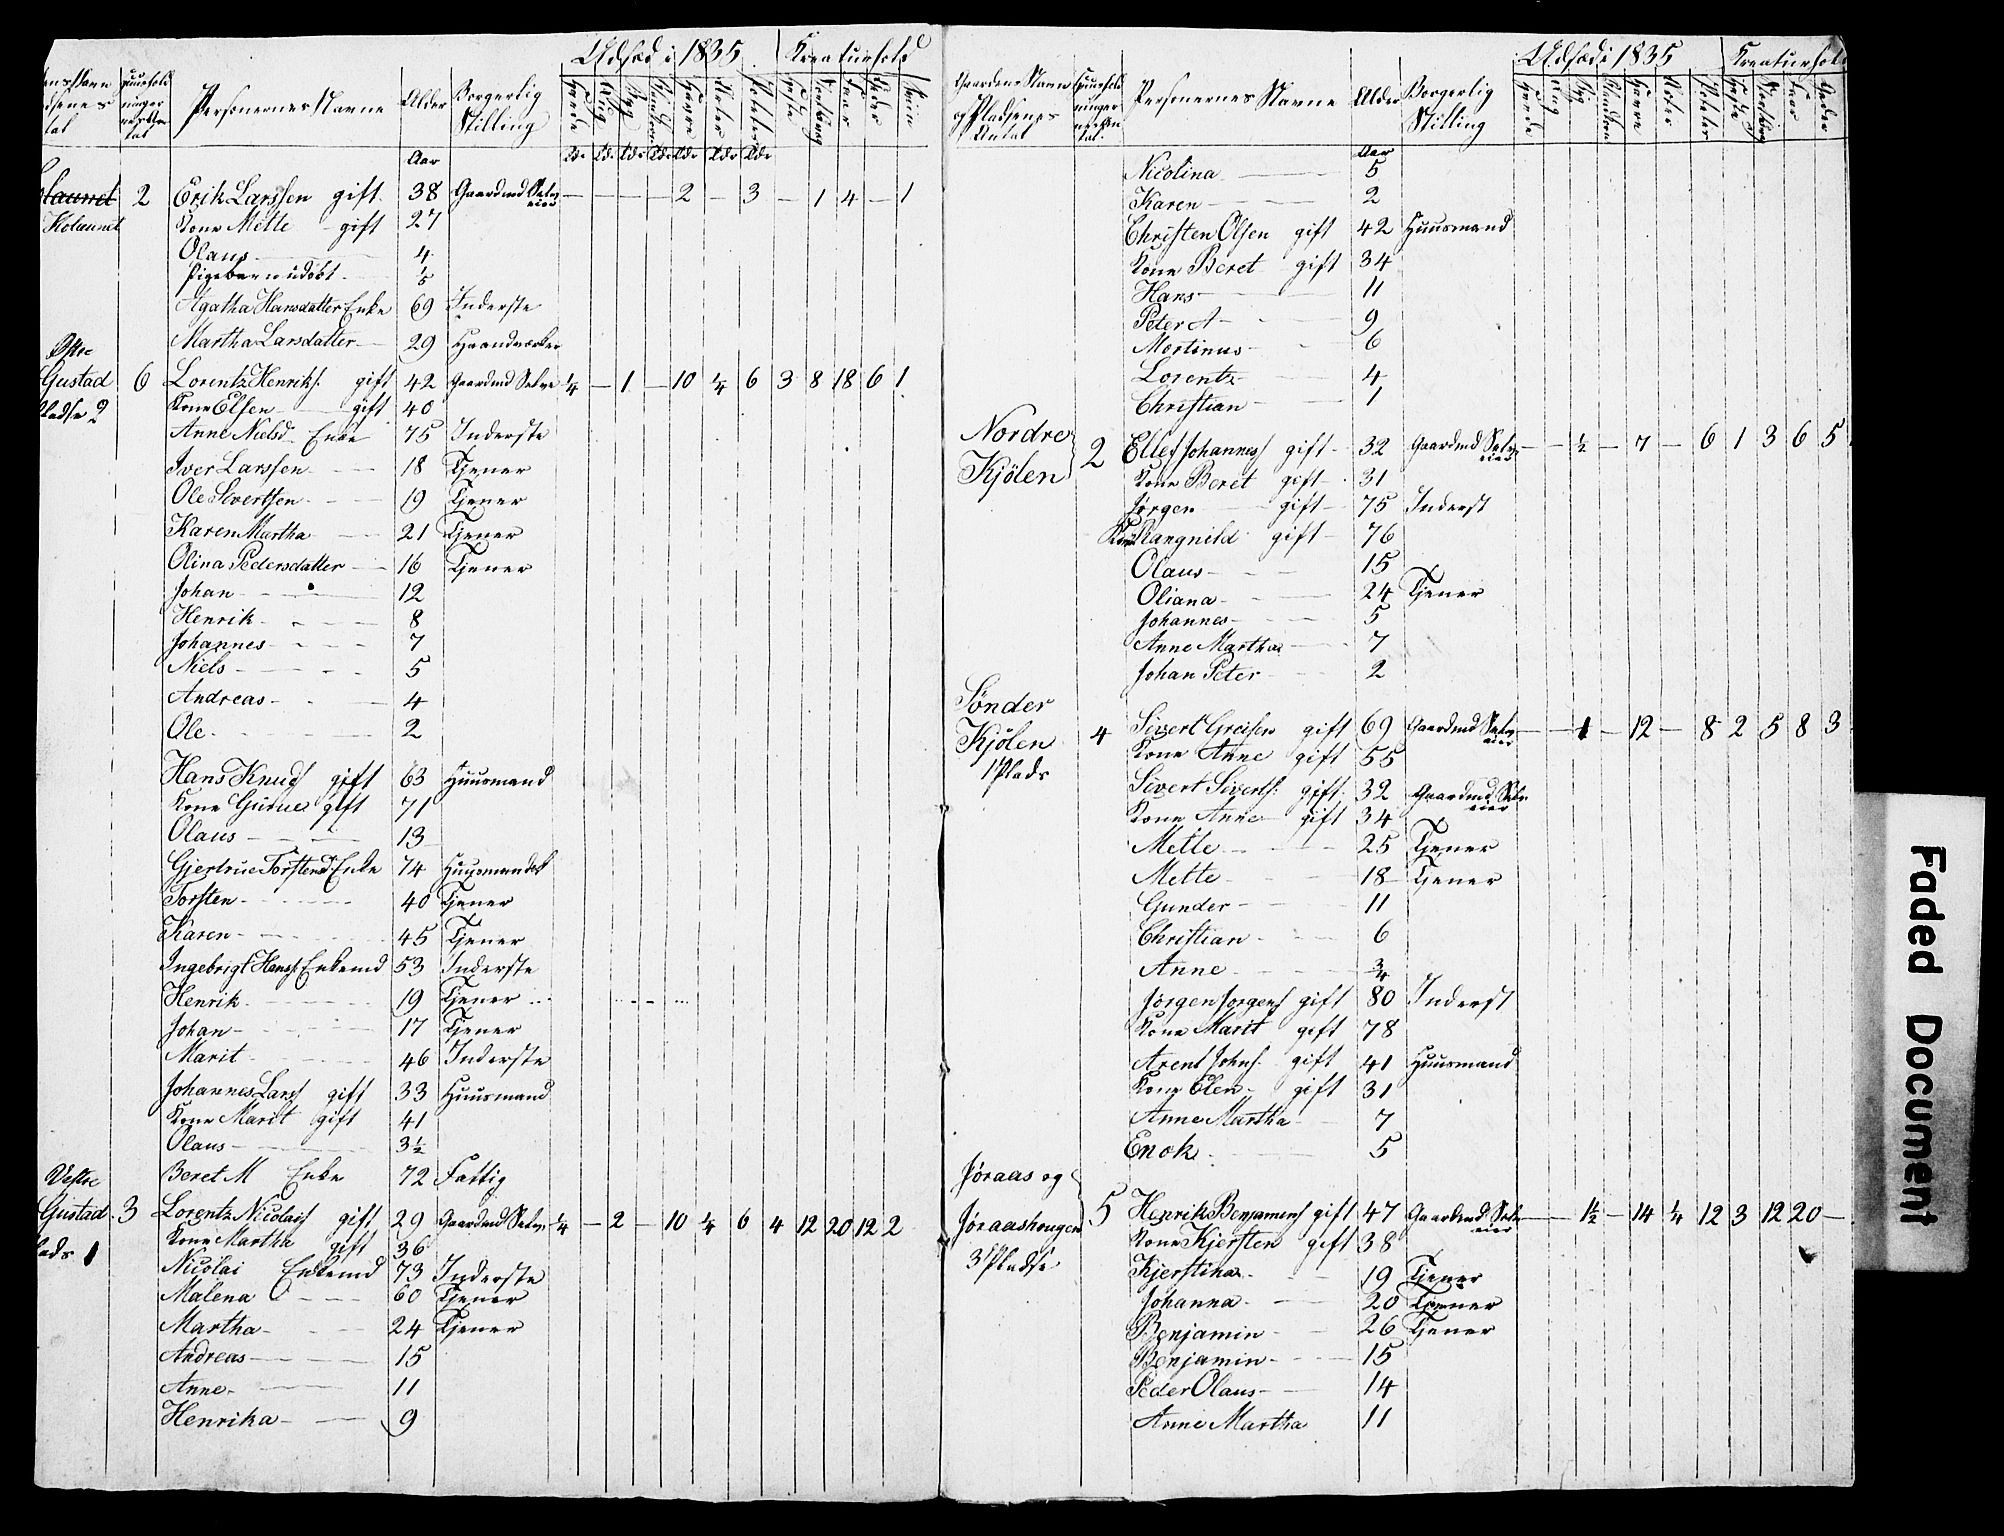 Udsæd i 1835 Kreaturhold
Personernes Navne Alder Borgerlig Stilling Hvede Rug Byg Havre Erter Poteter Heste Faar Geder Sviin
Aar Tdr Tdr Tdr Tdr Tdr Tdr Tdr
2 Erik Larssen gift 38 Gaardmd Selveier — — — — 2 — 3 — 1 4 — 1
Kone Mette gift 27
Olaus 4
Pigebarn udöbt
Agatha Hansdatter Enke 69 Inderste
Martha Larsdatter 29 Haandværker
Østre
Gustad 6 Lorentz Henriks. gift 42 Gaardmd Selve ¼ — 1 — 10 ¼ 6 3 8 18 6 1
Pladse 2 Kone Elsen gift 40
Anne Nielsd Enke 75 Inderste
Iver Larssen 18 Tjener
Ole Sivertsen 19 Tjener
Karen Martha 21 Tjener
Olina Pedersdatter 16 Tjener
Johan 12
Henrik 8
Johannes 7
Niels 5
Andreas 4
Ole 2
Hans Knuds gift 63 Huusmand
Kone Gurue gift 71
Olaus 13
Gjertrue Torstensd Enke 74 Huusmandsk
Torsten 40 Tjener
Karen 45 Tjener
Ingebrigt Hanss Enkemd 53 Inderste
Henrik 19 Tjener
Johan 17 Tjener
Marit 46 Inderste
Johannes Lars gift 33 Huusmand
Kone Marit gift 41
Olaus 3½
Vestre Beret M Enke 72 Fattig
Gustad 3 Lorentz Nicolais gift 29 Gaardmd Selve ¼ — 2 — 10 ¼ 6 4 12 20 12 2
Plads 1 Kone Martha gift 36
Nicolai Enkemd 73 Inderste
Malena 60 Tjener
Martha 24 Tjener
Andreas 15
Anne 11
Henrika 9
Udsæd i 1835 Kreaturhold
Gaardenes Navne og Pladsenes Antal Personernes Navne Alder Borgerlig Stilling Hvede Rug Byg Havre Erter Poteter Heste Faar Geder
Aar
Nicolina 5
Karen 2
Christen Olsen gift 42 Huusmand
Kone Beret gift 34
Hans 11
Peter A 9
Mortinus 6
Lorentz 4
Christian 1
Nordre
Kjölen 2 Ellef Johanness gift 32 Gaardmd Selveier — — ½ — 7 — 6 1 3 6 5
Kone Beret gift 31
Jørgen gift 75 Inderst
Kone Rangnild gift 76
Olaus 15
Oliana 24 Tjener
Johannes 5
Anne Martha 7
Johan Peter 2
Sönder
Kjölen 4 Sivert Greisen gift 69 Gaardmd Selveier — — 1 — 12 — 8 2 5 8 3
1 Plads Kone Anne gift 55
Sivert Siverts. gift 32 Gaardmd Selveier
Kone Anne gift 34
Mette 25 Tjener
Mette 18 Tjener
Gunder 11
Christian 6
Anne ¾
Jørgen Jørgens gift 80 Inderst
Kone Marit gift 78
Arent Johns. gift 41 Huusmand
Kone Elen gift 31
Anne Martha 7
Enok 5
Jøraas og
Jøraashougen 5 Henrik Benjamins gift 47 Gaardmd Selveier — — 1½ — 14 ¼ 12 3 12 20 —
3 Pladse Kone Kjersten gift 38
Kjerstina 19 Tjener
Johanna 20 Tjener
Benjamin 26 Tjener
Benjamin 15
Peder Olaus 14
Anne Martha 11
Faded Document